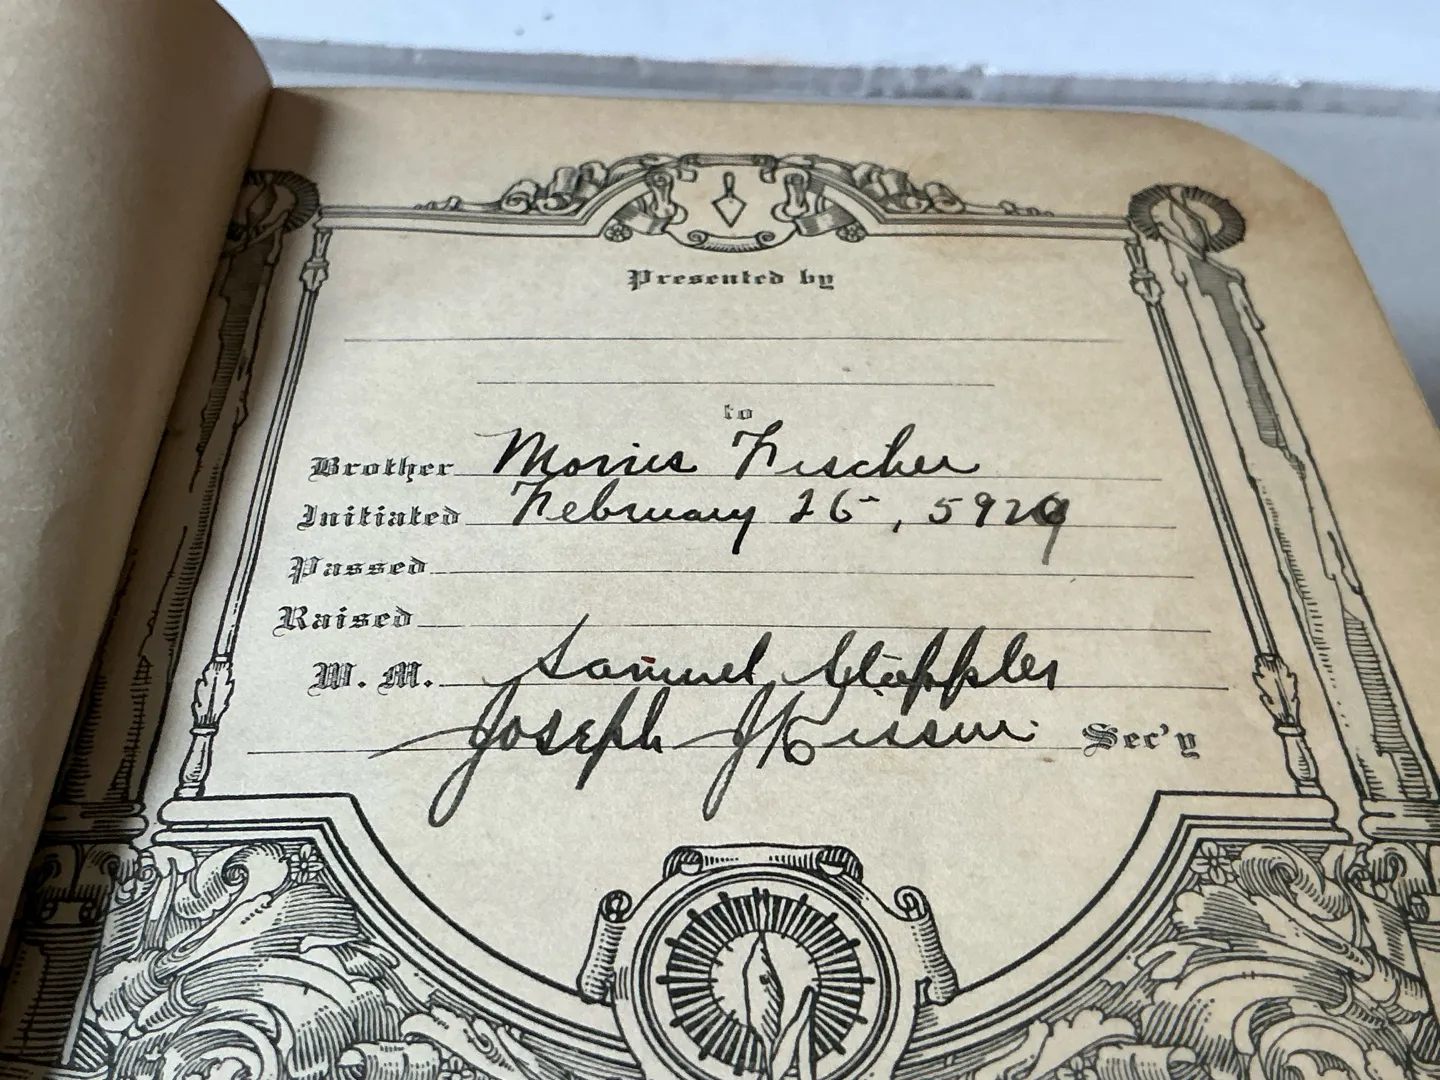 Presented by
to
Brother Morris Fischer
Initiated February 25, 5929
Passed
Raised
W. M. Samuel
Joseph Sec'y